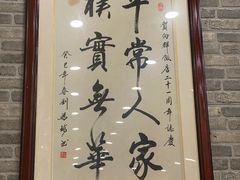 賀向群飯店二十一周年誌慶
平常人家
樸實無華
癸巳年春劉